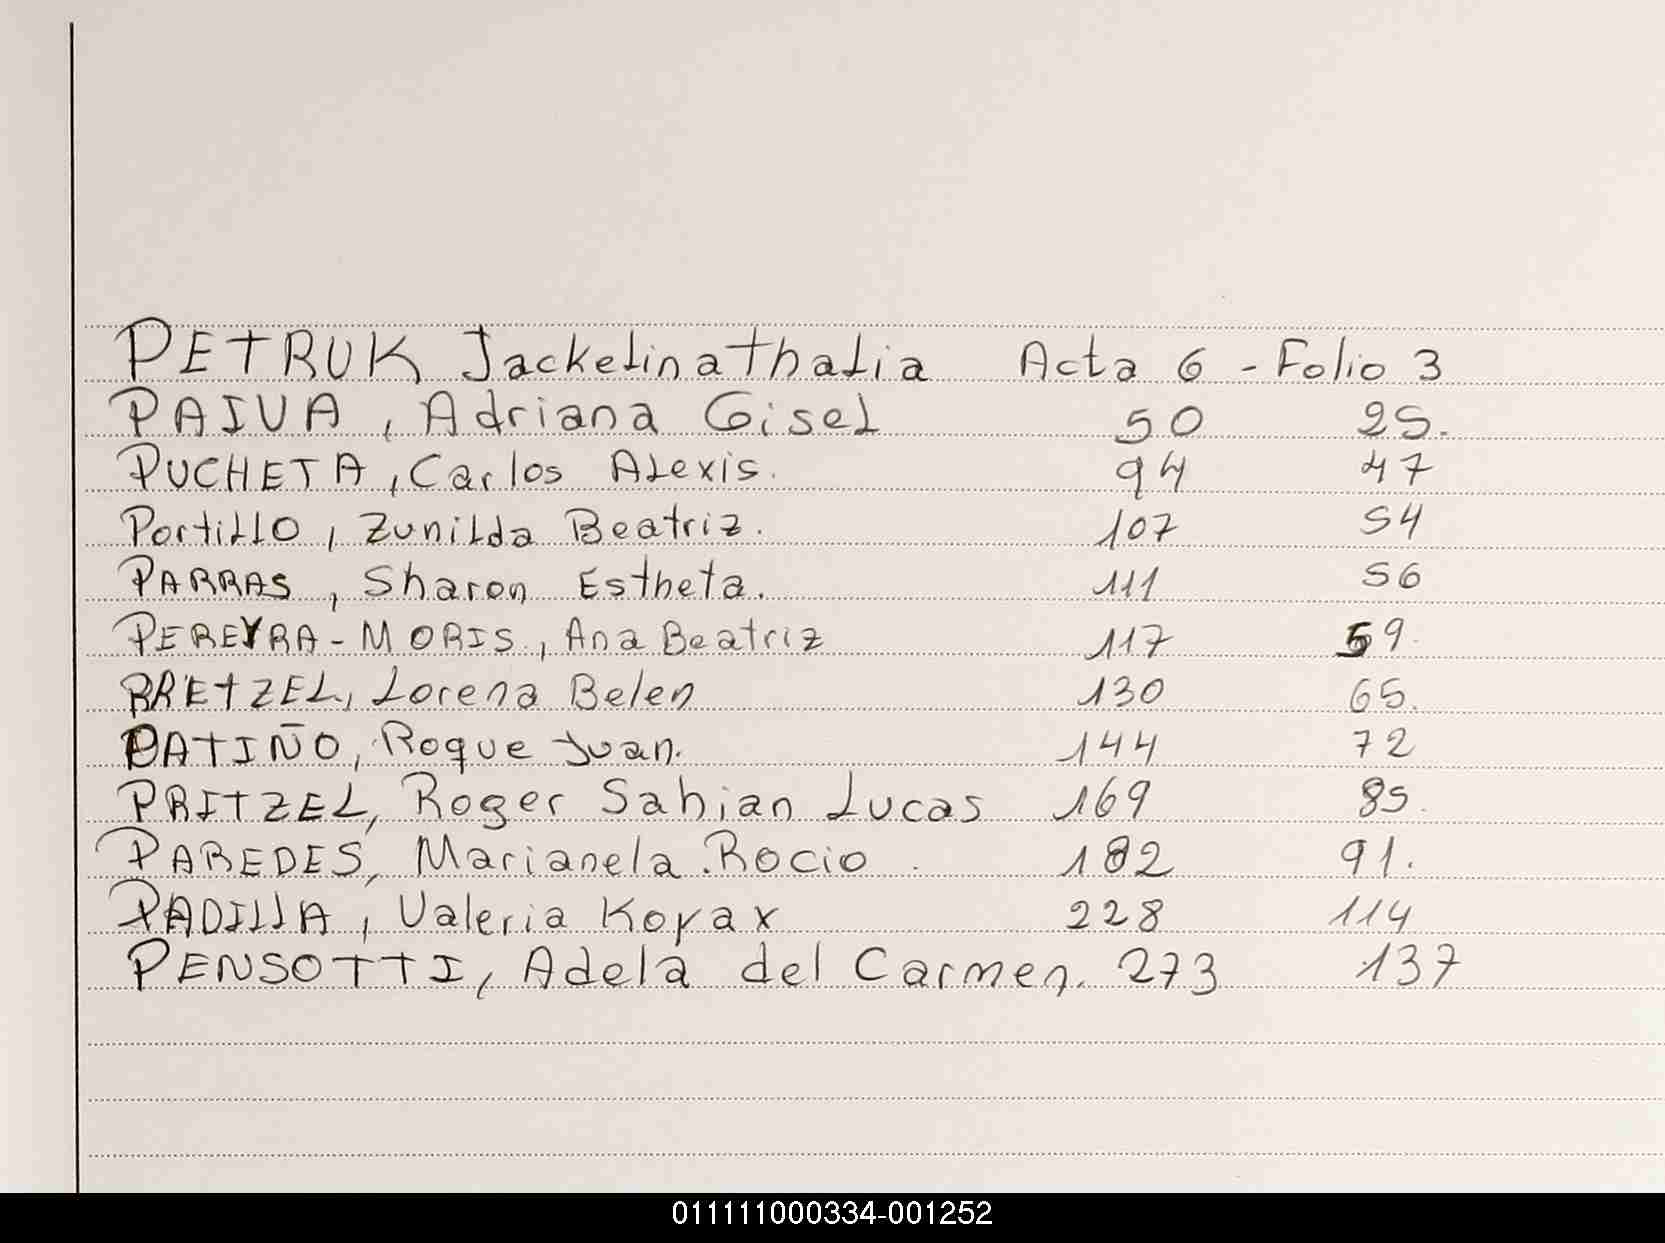 PETRUK Jackelinathalia Acta 6 - Folio 3
PAIVA, Adriana Gisel 50 25.
PUCHETA, Carlos Alexis. 94 47
Portillo, Zunilda Beatriz. 107 54
PARRAS, Sharon Estheta. 111 56
PEREYRA-MORIS, Ana Beatriz 117 59.
PRETZEL, Lorena Belen 130 65.
PATIÑO, Roque Juan. 144 72
PRITZEL, Roger Sabian Lucas 169 85.
PAREDES, Marianela Rocio. 182 91.
PADILLA, Valeria 228 114
PENSOTTI, Adela del Carmen. 273 137
011111000334-001252